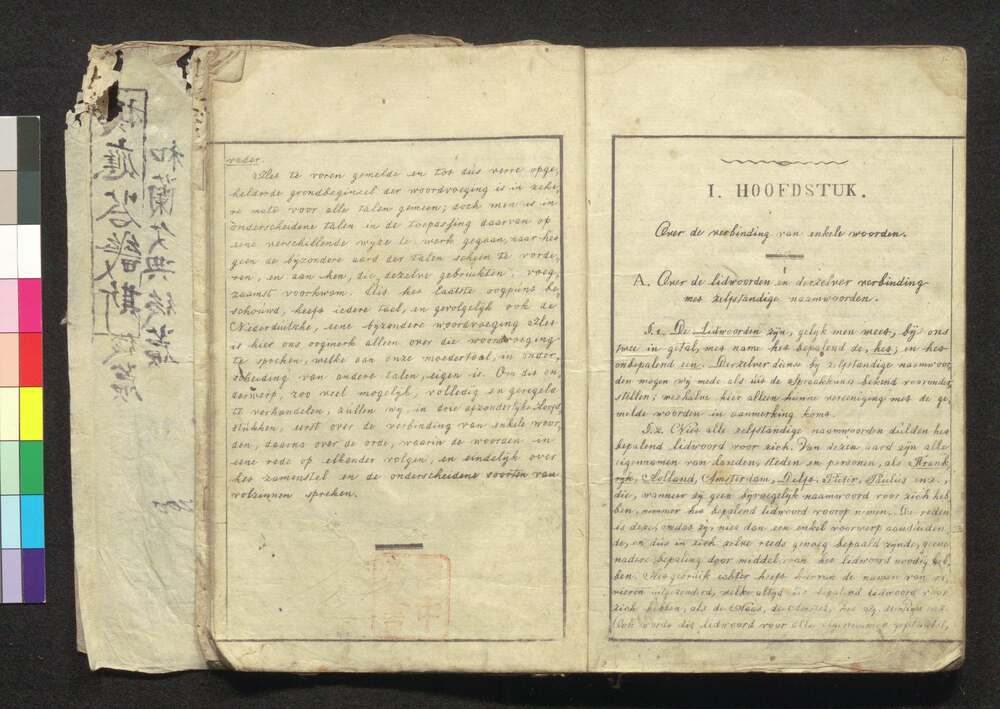 vader
Alles te voren gemelde en tot dus verre opge,
helderde grondbeginsel der woordvoeging is in zeke,
re mate voor alle talen gemeen; doch men is in
onderscheidene talen in de toepassing daarvan op
eene verschillende wyze te werk gegaan, naar het
geen de byzondere aard der talen scheen te vorde,
ren, en aan hen, die dezelve gebruikten, voeg,
zaamst voorkwam. Uit het laatste oogpunt be
schouwd, heeft iedere taal, en gevolgelyk ook de
Nederduitsche, eene byzondere woordvoeging. Alles
is hier ons oogmerk alleen over die woordvoeging
te spreken, welke aan onze moedertaal, in onder,
scheiding van andere talen, eigen is. Om dit on
derwerp, zoo veel mogelyk, volledig en geregeld
te verhandelen, zullen wy, in drie afzonderlyke Hoofd
stukken, eerst over de verbinding van enkele woor,
den, daarna over de orde, waarin de woorden in
eene rede op elkander volgen, en eindelyk over
het zamenstel en de onderscheidene soorten van
volzinnen spreken.
I. HOOFDSTUK.
Over de verbinding van enkele woorden.
A. Over de lidwoorden en derzelver verbinding
met zelfstandige naamwoorden.
§.1. De Lidwoorden zyn, gelyk men weet, by ons
twee in getal, met name het bepalend de, het; en het
onbepalend een. Derzelver dienst by zelfstandige naamwoor
den mogen wy mede als uit de Spraakkunst bekend vooronder
stellen; weshalve hier alleen hunne vereeniging met de ge,
melde woorden in aanmerking komt.
§.2. Niet alle zelfstandige naamwoorden dulden het
bepalend lidwoord voor zich. Van dezen aard zyn alle
eigennamen van landen, steden en personen, als Frank
ryk, Holland, Amsterdam, Delft, Pieter, Paulus enz.,
die, wanneer zy geen byvoegelyk naamwoord voor zich heb,
ben, nimmer het bepalend lidwoord voorop nemen. De reden
is deze, omdat zy, niet dan een enkel voorwerp aanduiden
de, en dus in zich zelve reeds genoeg bepaald zynde, geene
nadere bepaling door middel van het lidwoord noodig heb,
ben. Het gebruik echter heeft hiervan de namen van ri,
vieren uitgezonderd, welke altyd het bepalend lidwoord voor
zich hebben, als de Maas, de Amstel, het
Ook wordt dit lidwoord voor alle eigennamen geplaatst,